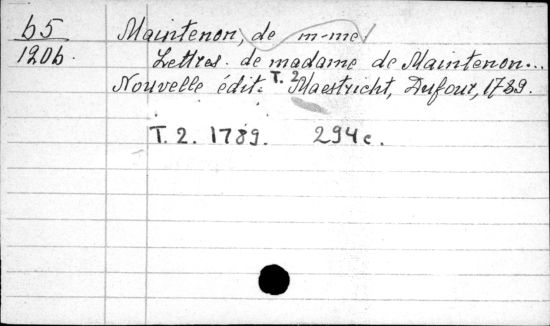 b5
120b.
Maintenon, de m-me
Lettres. de madame de Maintenon...
Nouvelle édit. T. 2 Maestricht, Dufour, 1789.
T. 2. 1789. 294 c.